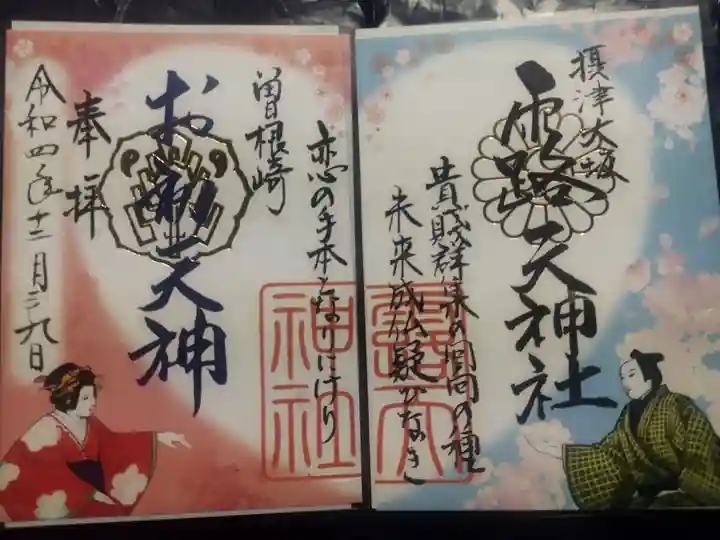 摂津大坂
露天神社
貴賤群集の回向の種
未来成仏疑ひなき
恋の手本となりにけり
曽根崎
お初天神
奉拝
令和四年十二月二九日
露天
神社